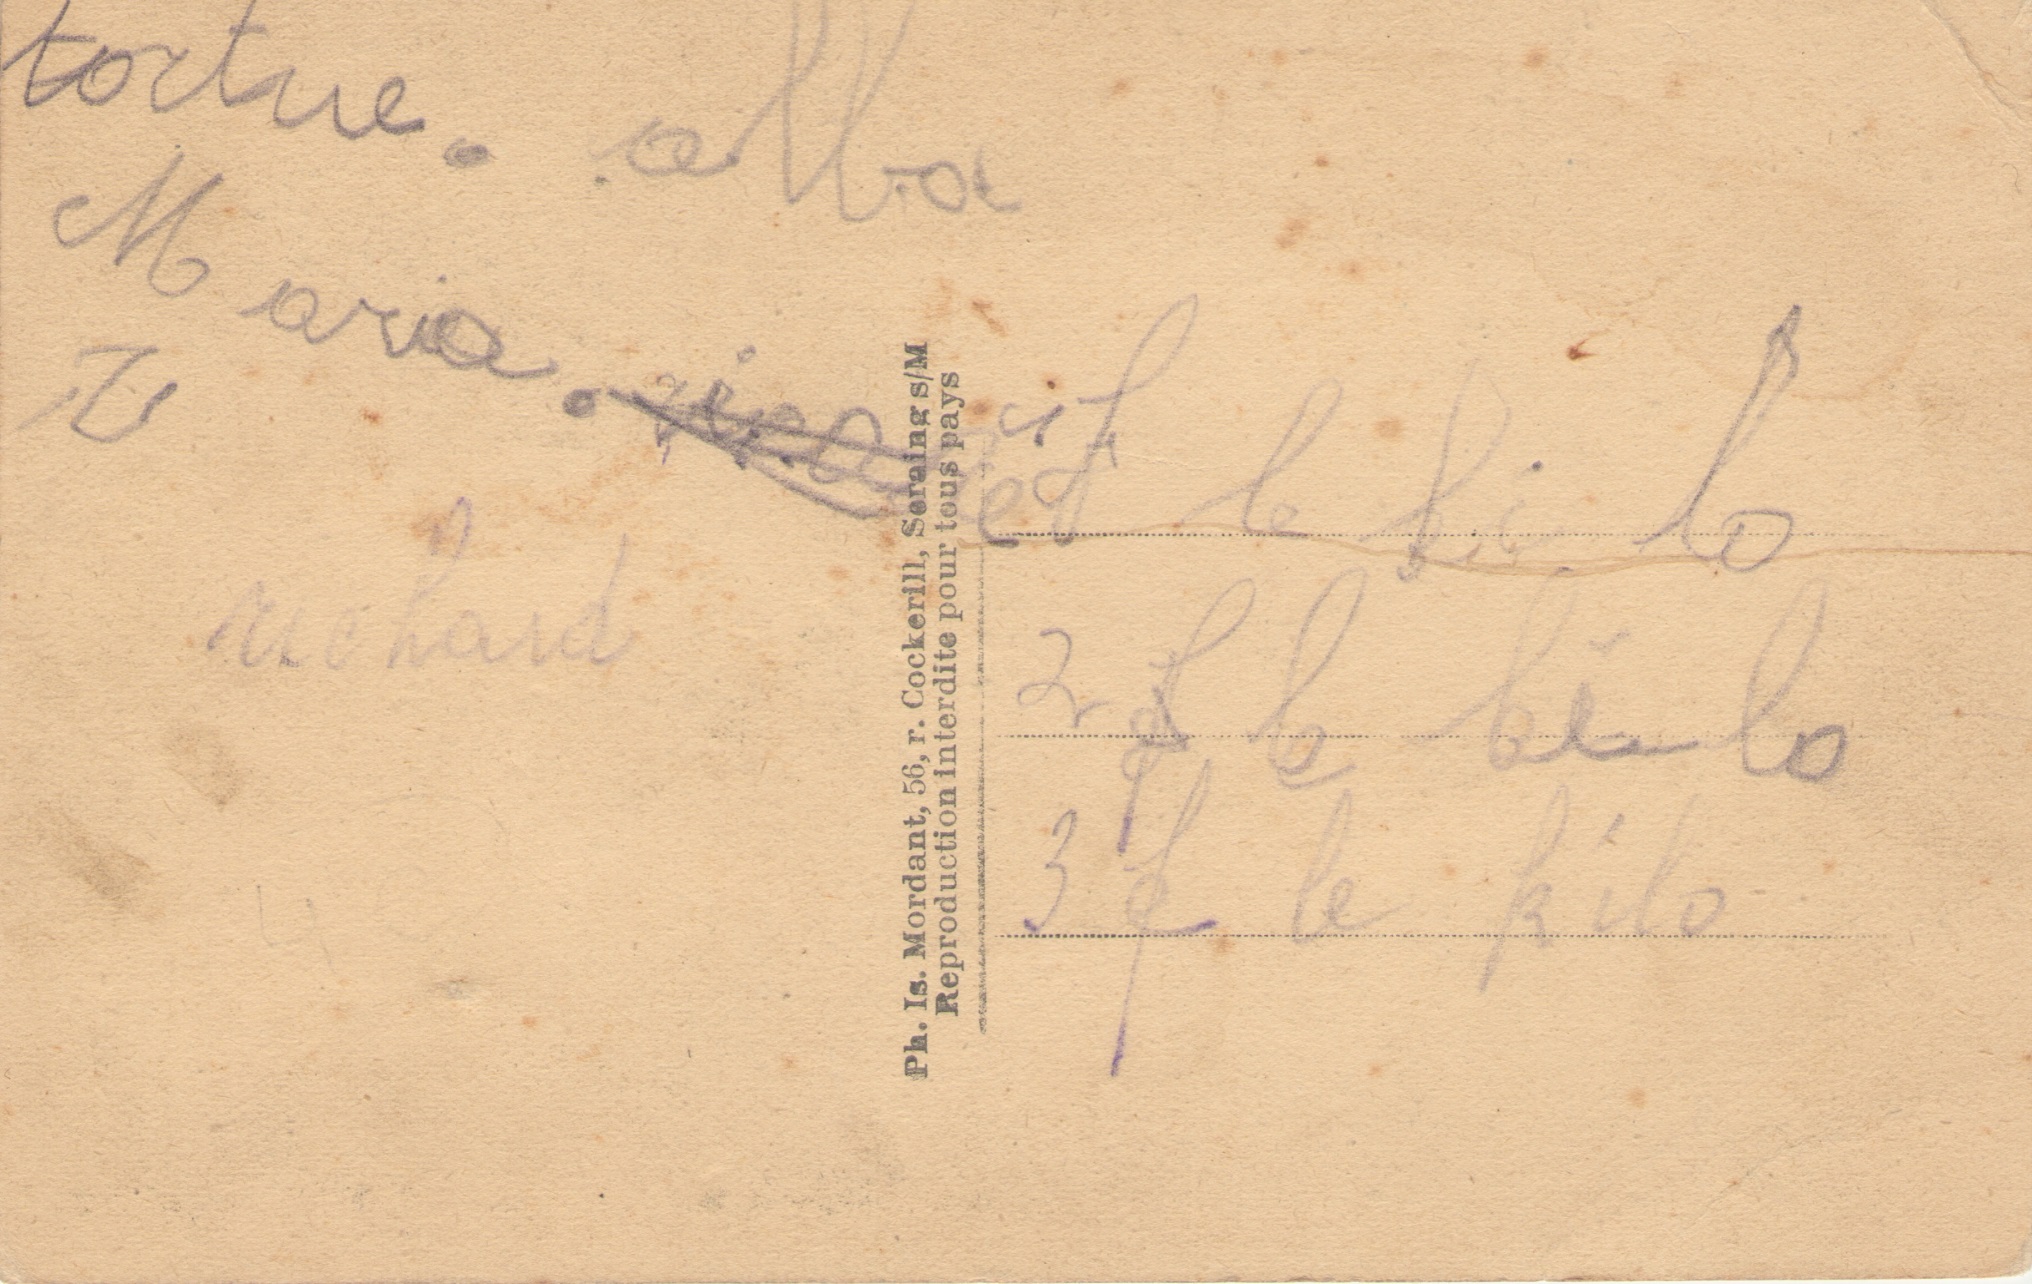 tortue. alba
Maria.
richard
Ph. Is. Mordant, 56, r. Cockerill, Seraing s/M
Reproduction interdite pour tous pays
le kilo
2 f le kilo
3 f le kilo